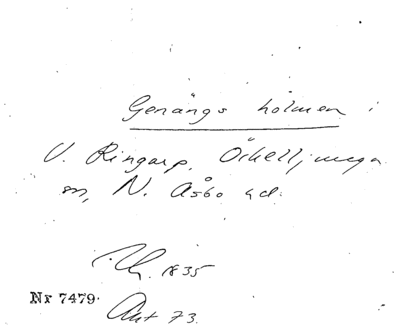 Genängs holmen i
V. Ringarp, Örkelljunga
sn, N. Åsbo hd.
1835
Nr 7479.
Akt 73.